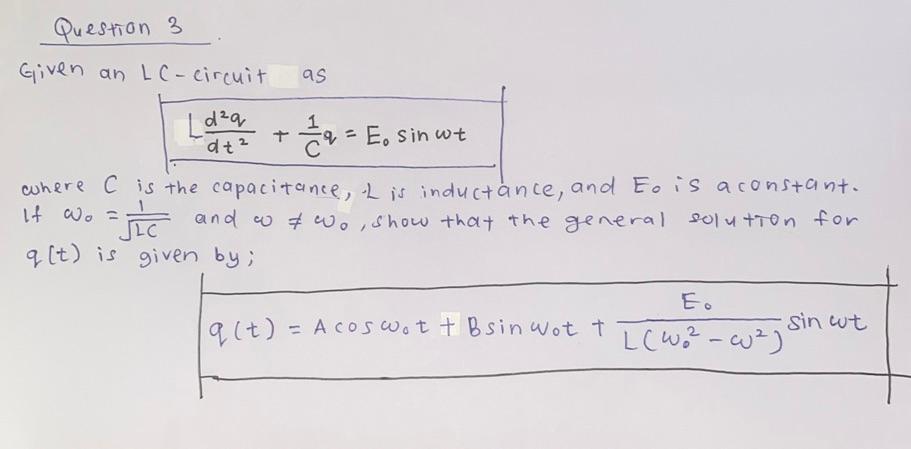 Question 3
Given an LC-circuit as
L d²q/dt² + 1/C q = E₀ sin ωt
where C is the capacitance, L is inductance, and E₀ is a constant.
If ω₀ = 1/√LC and ω ≠ ω₀, show that the general solution for
q(t) is given by;
q(t) = A cos ω₀t + B sin ω₀t + E₀/L(ω₀² - ω²) sin ωt